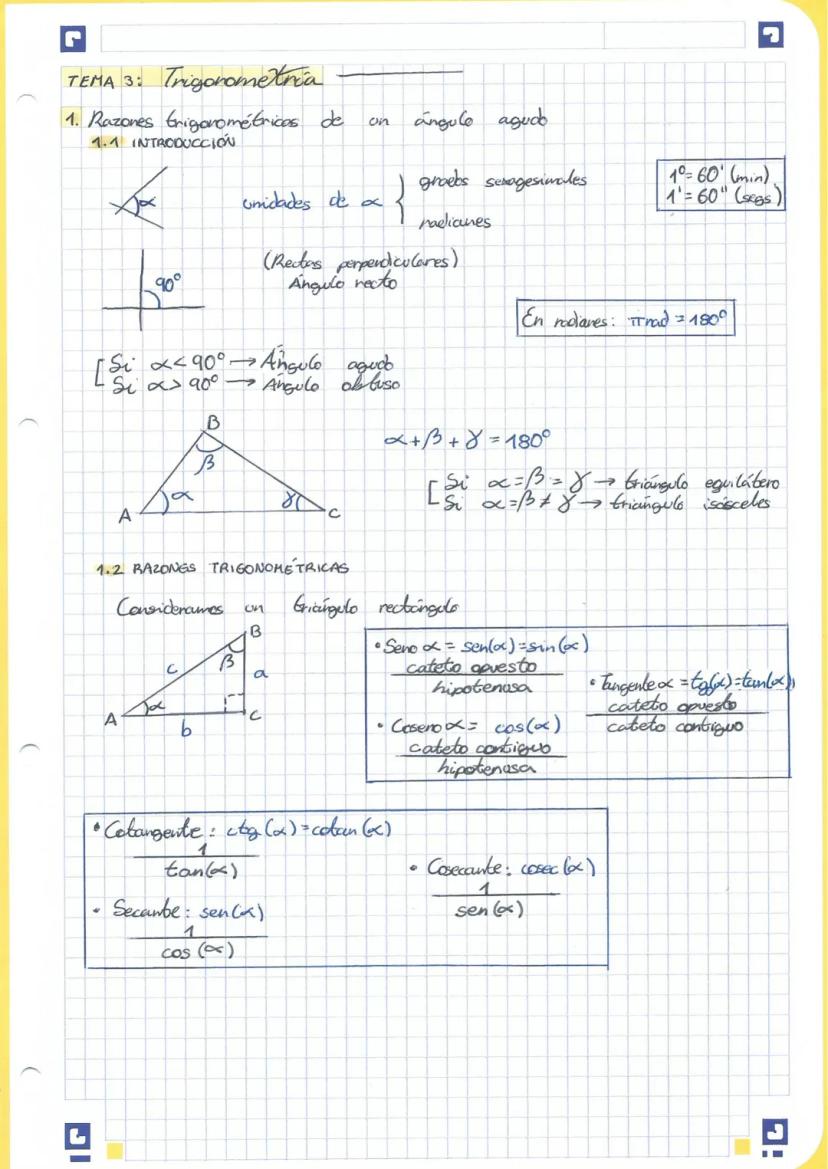 TEMA 3: Trigonometría
1. Razones trigonométricas de un ángulo agudo
1.1 INTRODUCCIÓN
α
unidades de α { grados sexagesimales
radianes
1º = 60' (min)
1' = 60'' (segs)
90º
(Rectas perpendiculares)
Ángulo recto
En radianes: π rad = 180º
[Si α < 90º → Ángulo agudo
Si α > 90º → Ángulo obtuso
B
β
α
γ
A
C
α + β + γ = 180º
[Si α = β = γ → triángulo equilátero
Si α = β ≠ γ → triángulo isósceles
1.2 RAZONES TRIGONOMÉTRICAS
Consideramos un triángulo rectángulo
B
c
β
a
A
α
C
b
• Seno α = sen(α) = sin(α)
cateto opuesto
hipotenusa
• Coseno α = cos(α)
cateto contiguo
hipotenusa
• Tangente α = tg(α) = tan(α)
cateto opuesto
cateto contiguo
• Cotangente: ctg(α) = cotan(α)
1
tan(α)
• Secante: sen(α)
1
cos(α)
• Cosecante: cosec(α)
1
sen(α)